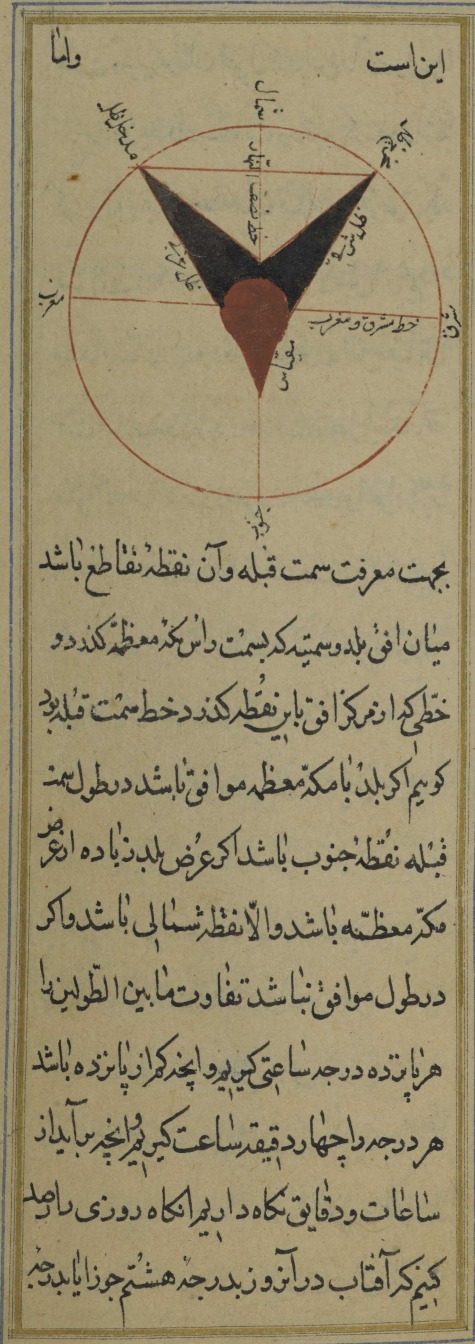 این است واما
شمال
مدخل ظل
مخرج ظل
خط نصف النهار
ظل غربی
ظل شرقی
مغرب
مشرق
خط مشرق و مغرب
مقیاس
جنوب
بجهت معرفت سمت قبله وآن نقطهٔ تقاطع باشد
میان افق بلد و سمتیه که بسمت رأس مکهٔ معظمه کذرد و
خطی که از مرکز افق باین نقطه کذرد خط سمت قبله بود
کوییم اکر بلد با مکهٔ معظمه موافق باشد در طول سمت
قبله نقطهٔ جنوب باشد اکر عرض بلد زیاده از عرض
مکهٔ معظّمه باشد والّا نقطهٔ شمالی باشد و اکر
در طول موافق نباشد تفاوت ما بین الطّولین را
هر پانزده درجه ساعتی کیریم و انچه کم از پانزده باشد
هر درجه را چهار دقیقه ساعت کیریم و انچه برآید از
ساعات و دقایق نکاه داریم انکاه روزی را رصد
کنیم که آفتاب در آنروز بدرجهٔ هشتم جوزا یا بدرجهٔ